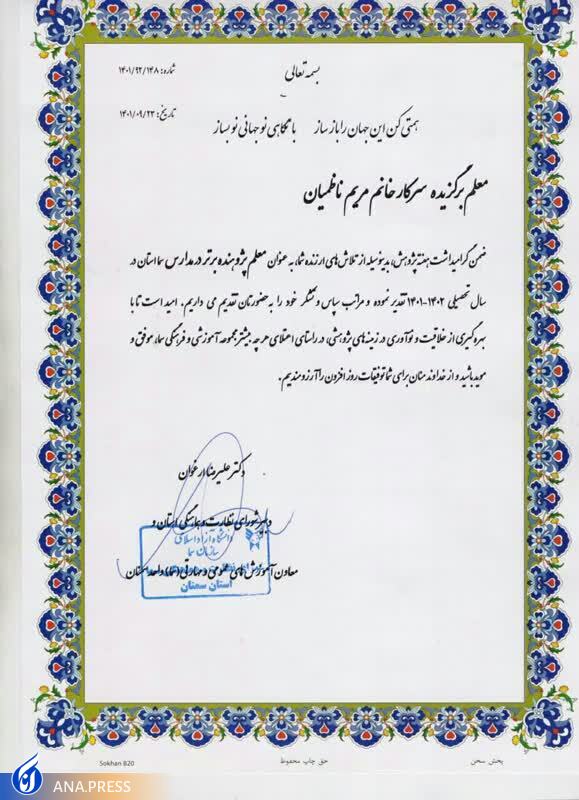 بسمه تعالی
شماره: ۱۴۰۱/۹۲/۱۴۸
تاریخ: ۱۴۰۱/۰۹/۲۳
همتی کن این جهان را باز ساز با نگاهی نو جهانی نو بساز
معلم برگزیده سرکار خانم مریم ناظمیان
ضمن گرامیداشت هفته پژوهش، بدینوسیله از تلاش های ارزنده شما، به عنوان معلم پژوهنده برتر در مدارس سما استان در
سال تحصیلی ۱۴۰۲-۱۴۰۱ تقدیر نموده و مراتب سپاس و تشکر خود را به حضورتان تقدیم می داریم. امید است تا با
بهره گیری از خلاقیت و نوآوری در زمینه های پژوهشی، در راستای اعتلای هر چه بیشتر مجموعه آموزشی و فرهنگی سما، موفق و
موید باشید و از خداوند منان برای شما توفیقات روز افزون را آرزومندیم.
دکتر علیرضا ارغوان
دبیر شورای نظارت و هماهنگی استان و
دانشگاه آزاد اسلامی
سازمان سما
معاون آموزش های عمومی و مهارتی (سما) واحد سمنان
استان سمنان
پخش سخن
حق چاپ محفوظ
Sokhan B20
ANA.PRESS